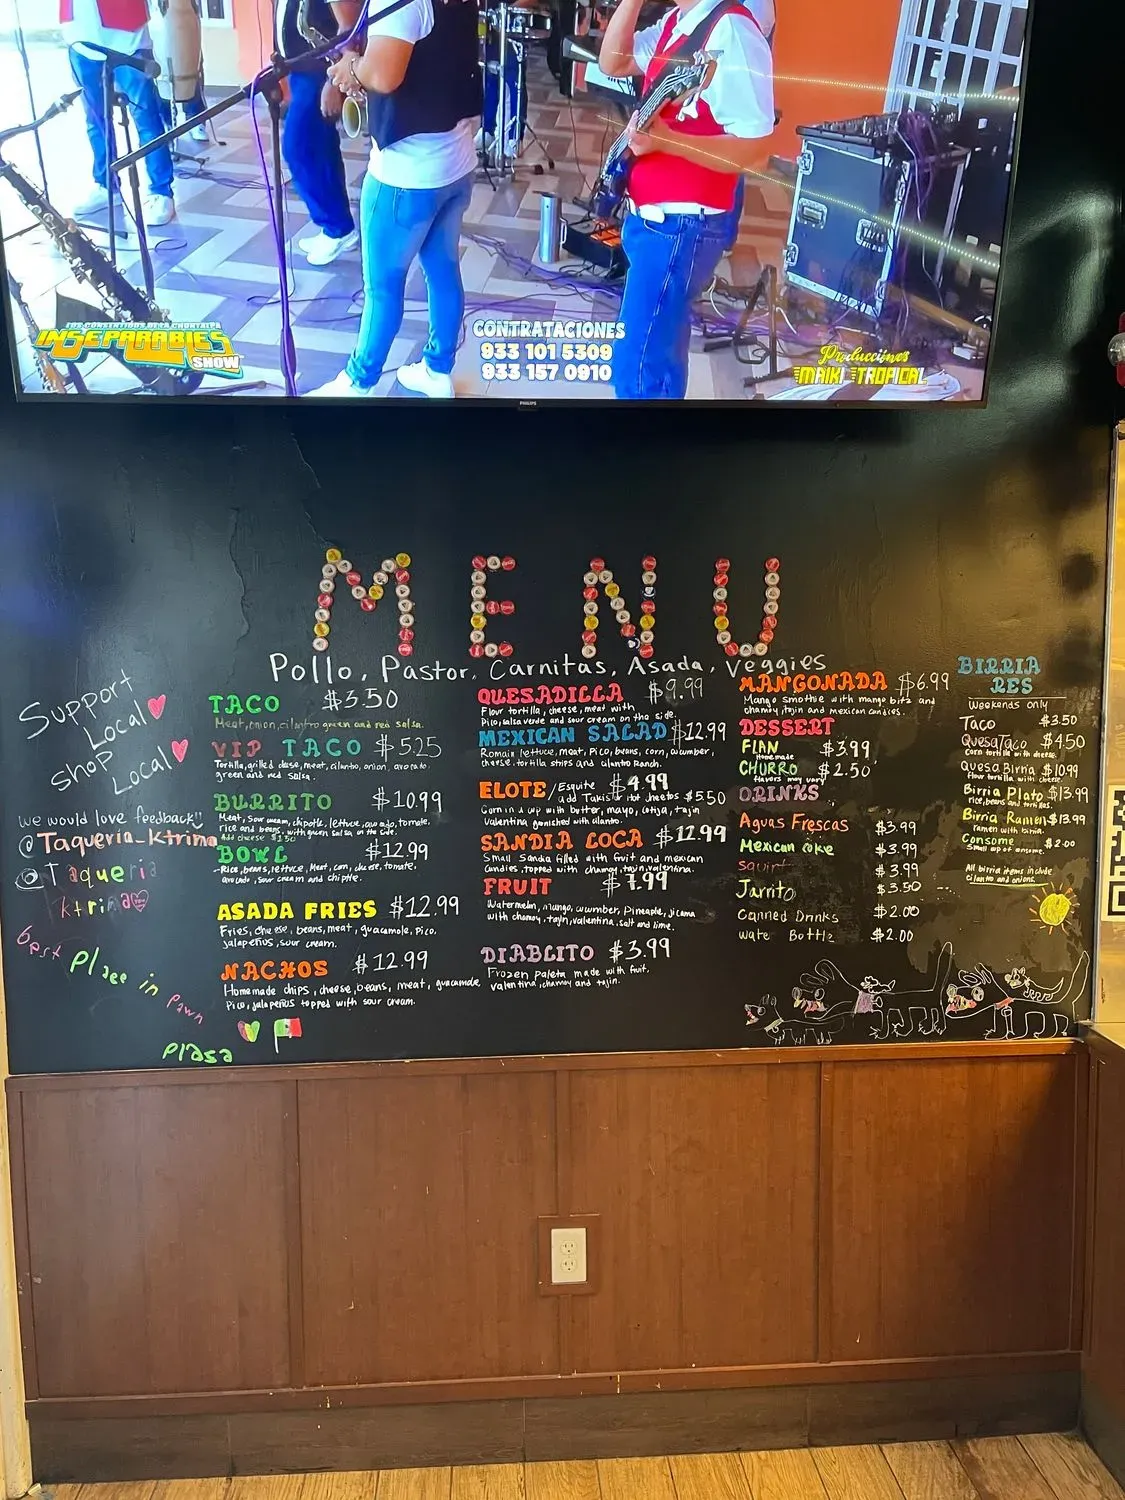 LOS CONSENTIDOS DE LA CHONTALPA
INSEPARABLES
SHOW
CONTRATACIONES
933 101 5309
933 157 0910
Producciones
MAIKI TROPICAL
PHILIPS
MENU
Pollo, Pastor, Carnitas, Asada, Veggies
Support
Local
Shop
Local
we would love feedback!!
@Taqueria_Ktrina
@Taqueria
Ktrina
Best Place in Pawn
Plasa
TACO $3.50
Meat, onion, cilantro green and red salsa.
VIP TACO $5.25
Tortilla, grilled chese, meat, cilanto, onion, avocato,
green and red salsa.
BURRITO $10.99
Meat, sour cream, chipotle, lettuce, avocado, tomato,
rice and beans, with green salsa on the side.
Add cheese $1.50
BOWL $12.99
-Rice, beans, lettuce, Meat, corn, cheese, tomato,
avocado, sour cream and chiptle.
ASADA FRIES $12.99
Fries, cheese, beans, meat, guacamole, pico,
jalapeños, sour cream.
NACHOS $12.99
Homemade chips, cheese, beans, meat, guacamole,
Pico, jalapeños topped with sour cream.
QUESADILLA $9.99
Flour tortilla, cheese, meat with
Pico, salsa verde and sour cream on the side.
MEXICAN SALAD $12.99
Romain lettuce, meat, Pico, beans, corn, cucumber,
cheese, tortilla strips and cilantro Ranch.
ELOTE /Esquite $4.99
add Takis or Hot cheetos $5.50
Corn in a cup with butter, mayo, cotija, tajin
Valentina garnished with cilantro.
SANDIA LOCA $12.99
Small Sandia filled with fruit and mexican
candies, topped with chamoy, tajin, valentina.
FRUIT $7.99
Watermelon, mango, cucumber, Pineaple, jicama
with chamoy, tajin, valentina, salt and lime.
DIABLITO $3.99
Frozen paleta made with fruit,
valentina, chamoy and tajin.
MANGONADA $6.99
Mango smothie with mango bitz and
chamoy, tajin and mexican candies.
DESSERT
FLAN $3.99
Homemade
CHURRO $2.50
flavors may vary
DRINKS
Aguas Frescas $3.99
Mexican coke $3.99
squirt $3.99
Jarrito $3.50
Canned Drinks $2.00
Water Bottle $2.00
BIRRIA
RES
Weekends only
Taco $3.50
QuesaTaco $4.50
Corn tortilla with cheese.
Quesa Birria $10.99
Flour tortilla with cheese.
Birria Plato $13.99
rice, beans and tortillas.
Birria Ramen $13.99
ramen with birria.
Consome $2.00
Small cup of consome.
All birria items include
cilantro and onions.